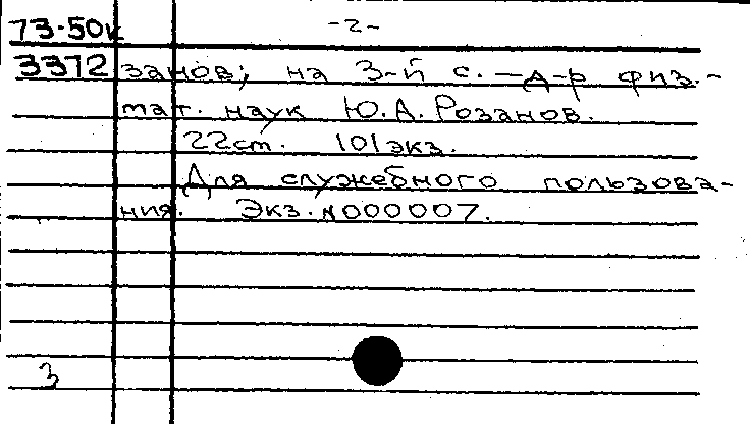 73-50к -2-
3372 занов; на 3-й с. — д-р физ.-
мат. наук Ю.А. Розанов.
22 cm. 101 экз.
Для служебного пользова-
ния. Экз. N000007.
3